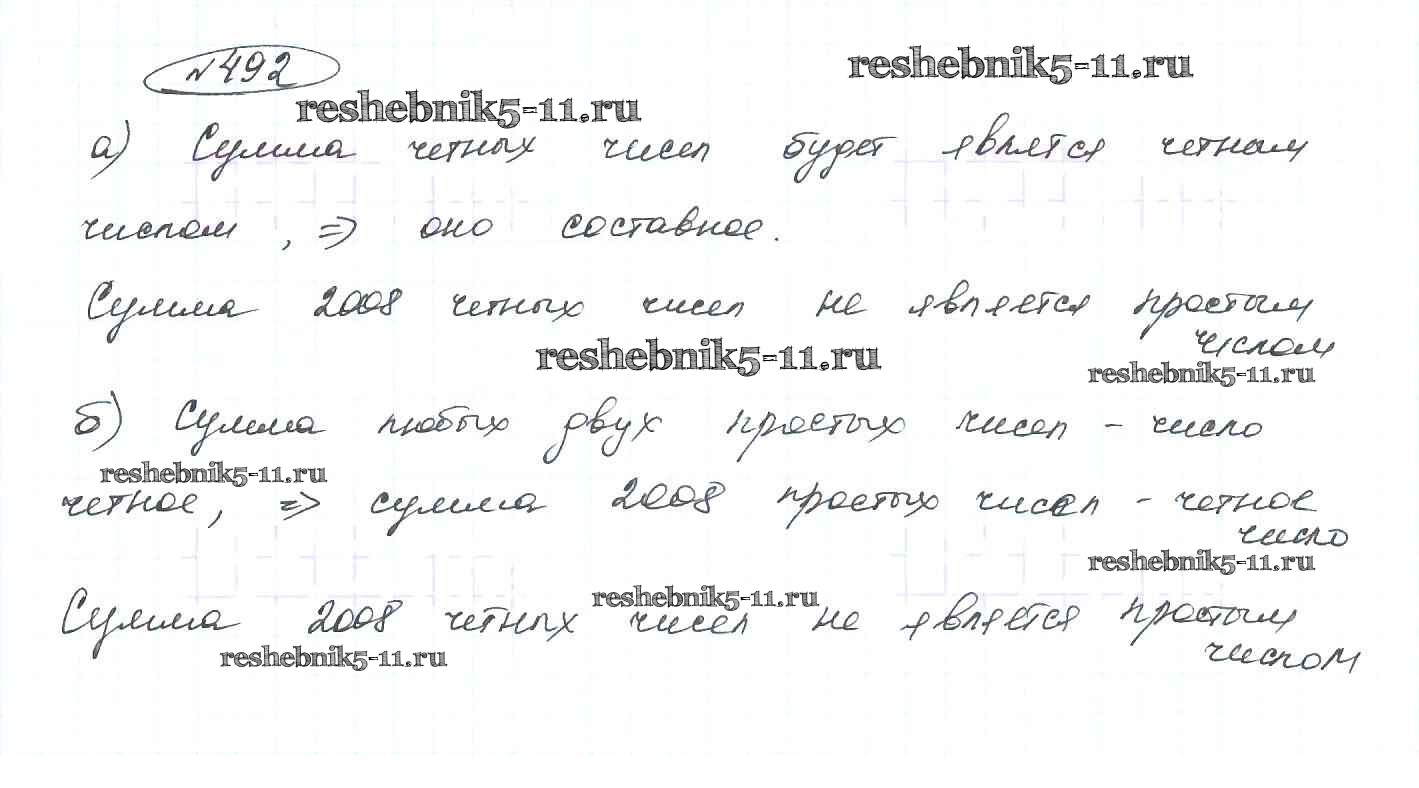 №492
reshebnik5-11.ru
reshebnik5-11.ru
а) Сумма четных чисел будет являтся четным
числом, => оно составное.
Сумма 2008 четных чисел не является простым
числом
reshebnik5-11.ru
reshebnik5-11.ru
б) Сумма любых двух простых чисел - число
reshebnik5-11.ru
четное, => сумма 2008 простых чисел - четное
число
reshebnik5-11.ru
reshebnik5-11.ru
Сумма 2008 четных чисел не является простым
числом
reshebnik5-11.ru